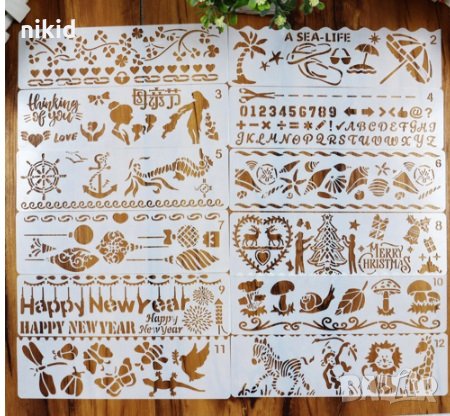 nikid
A SEA-LIFE
2
thinking
of you
LOVE
母亲节
3
0123456789
4
ABCDEFG
HIJKLMNOPQRSTUVWXYZ
5
6
7
MERRY
CHRISTMAS
8
Happy New Year
HAPPY NEW YEAR
Happy
New Year
9
10
11
12
BAZAR